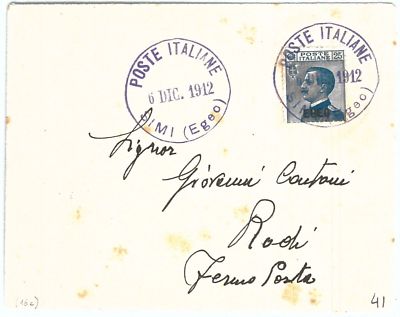 POSTE ITALIANE
6 DIC. 1912
SIMI (Egeo)
POSTE ITALIANE
1912
SIMI (Egeo)
POSTE
EGEO
Signor
Giovanni Cantoni
Rodi
Fermo Posta
(15c)
41